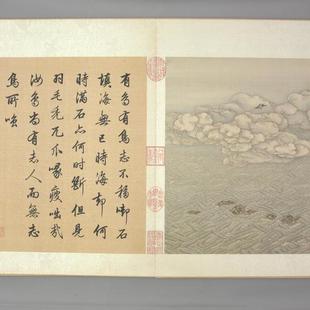 有鳥有鳥志不移啣石
填海無已時海却何
時滿石亦何時斷但見
羽毛禿兀爪喙疲咄哉
汝鳥尚有志人而無志
鳥所嗤